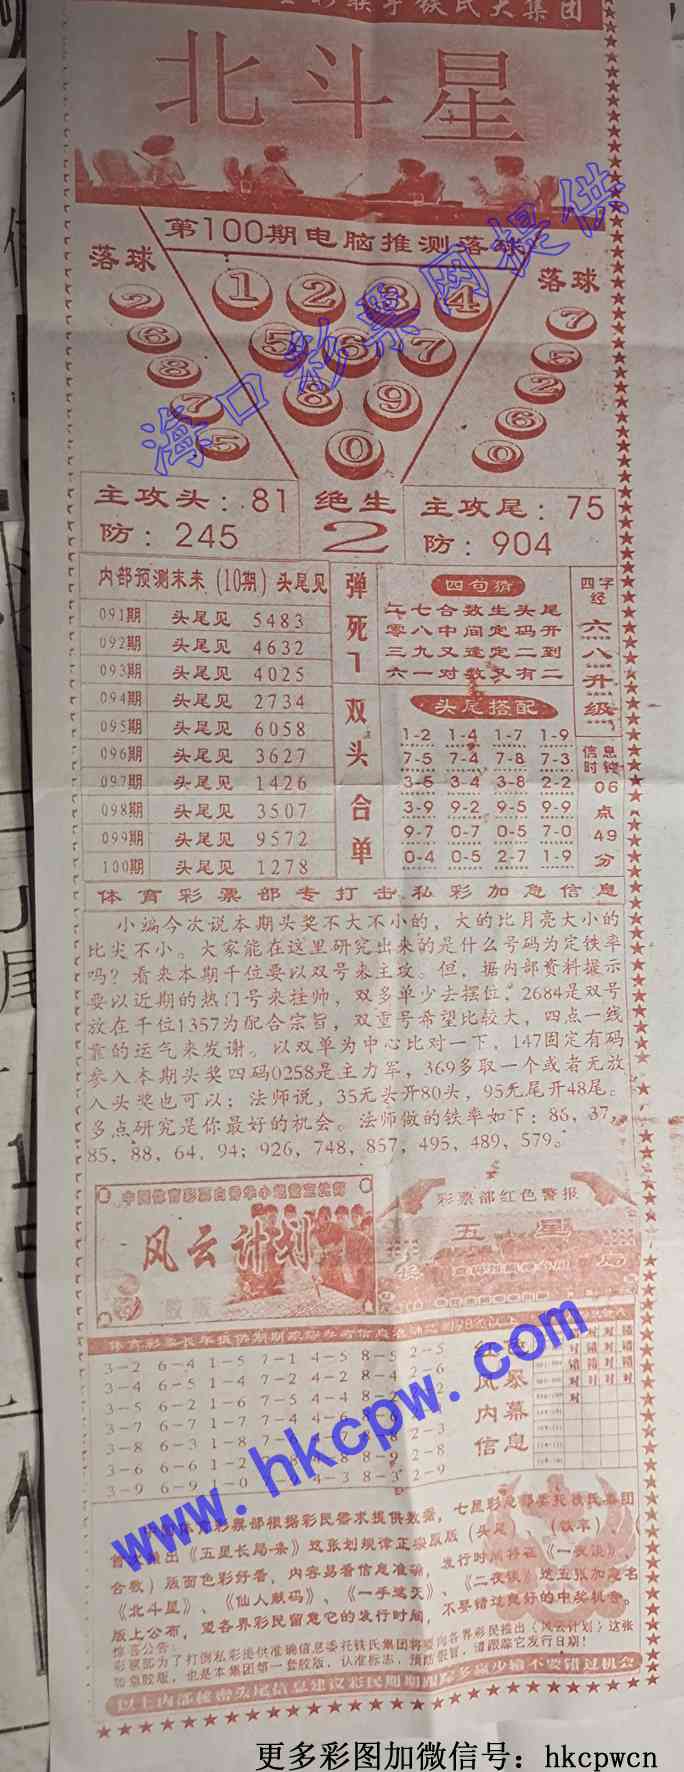 铁氏大集团
北斗星
第100期电脑推测落球
落球
落球
1 2 3 4
5 6 7
8 9
0
2
6
8
7
5
7
5
2
6
0
海口彩票网提供
主攻头：81
防：245
绝生
2
主攻尾：75
防：904
内部预测末来（10期）头尾见
091期 头尾见 5483
092期 头尾见 4632
093期 头尾见 4025
094期 头尾见 2734
095期 头尾见 6058
096期 头尾见 3627
097期 头尾见 1426
098期 头尾见 3507
099期 头尾见 9572
100期 头尾见 1278
弹死7
双头合单
四句猜
二七合数生头尾
零八中间定码开
三九又逢定二到
六一对数又有二
头尾搭配
1-2 1-4 1-7 1-9
7-5 7-4 7-8 7-3
3-5 3-4 3-8 2-2
3-9 9-2 9-5 9-9
9-7 0-7 0-5 7-0
0-4 0-5 2-7 1-9
四字经
六八升级
信息时钟
06点49分
体育彩票部专打击私彩加急信息
小编今次说本期头奖不大不小的，大的比月亮大小的
比尖不小。大家能在这里研究出来的是什么号码为定铁率
吗？看来本期千位要以双号来主攻。但，据内部资料提示
要以近期的热门号来挂帅，双多单少去摆位，2684是双号
放在千位1357为配合宗旨，双重号希望比较大，四点一线
靠的运气来发谢。以双单为中心比对一下，147固定有码
参入本期头奖四码0258是主力军，369多取一个或者无放
入头奖也可以；法师说，35无头开80头，95无尾开48尾。
多点研究是你最好的机会。法师做的铁率如下：86，37，
85，88，64，94；926，748，857，495，489，579。
风云计划
胶版
彩票部红色警报
五星
3-2 6-4 1-5 7-1 4-5 8-5 2-5
3-4 6-5 1-4 7-2 4-2 8-4 2-6
3-5 6-2 1-6 7-5 4-4 8-2
3-7 6-7 1-7 7-4 4-6
3-8 6-3 1-8 2-3
3-6 6-6 1-2 2-8
3-9 6-9 1-0 4-3 8-3 2-9
风暴
内幕
信息
www.hkcpw.com
彩票部根据彩民需求提供数据，七星彩总部委托铁氏集团
推出《五星长局-条》这张划规律正来原版（头尾）、（铁率）、（
合数）版面色彩好看，内容易看信息准确，发行时间将在《一夜谈》、
《北斗星》、《仙人献码》、《一手遮天》、《二夜谈》这五张加急名
版上公布，望各界彩民留意它的发行时间，不要错过良好的中奖机会。
惊喜公告：
彩票部为了打倒私彩提供准确信息委托铁氏集团将要向各界彩民推出《风云计划》这张
加急胶版，也是本集团第一套胶版，认准标志，预防假冒，请跟踪它发行日期！
以上内部秘密头尾信息建议彩民期期跟踪多赢少输不要错过机会
更多彩图加微信号：hkcpwcn